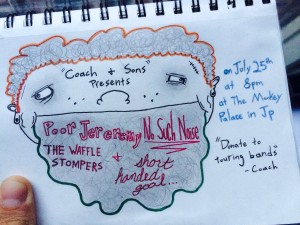 "Coach & Sons"
Presents
Poor Jeremy No Such Noise
THE WAFFLE
STOMPERS
&
short
handed
goal...
on July 25th
at 8pm
at The Monkey
Palace in Jp
"Donate to
touring bands"
-Coach